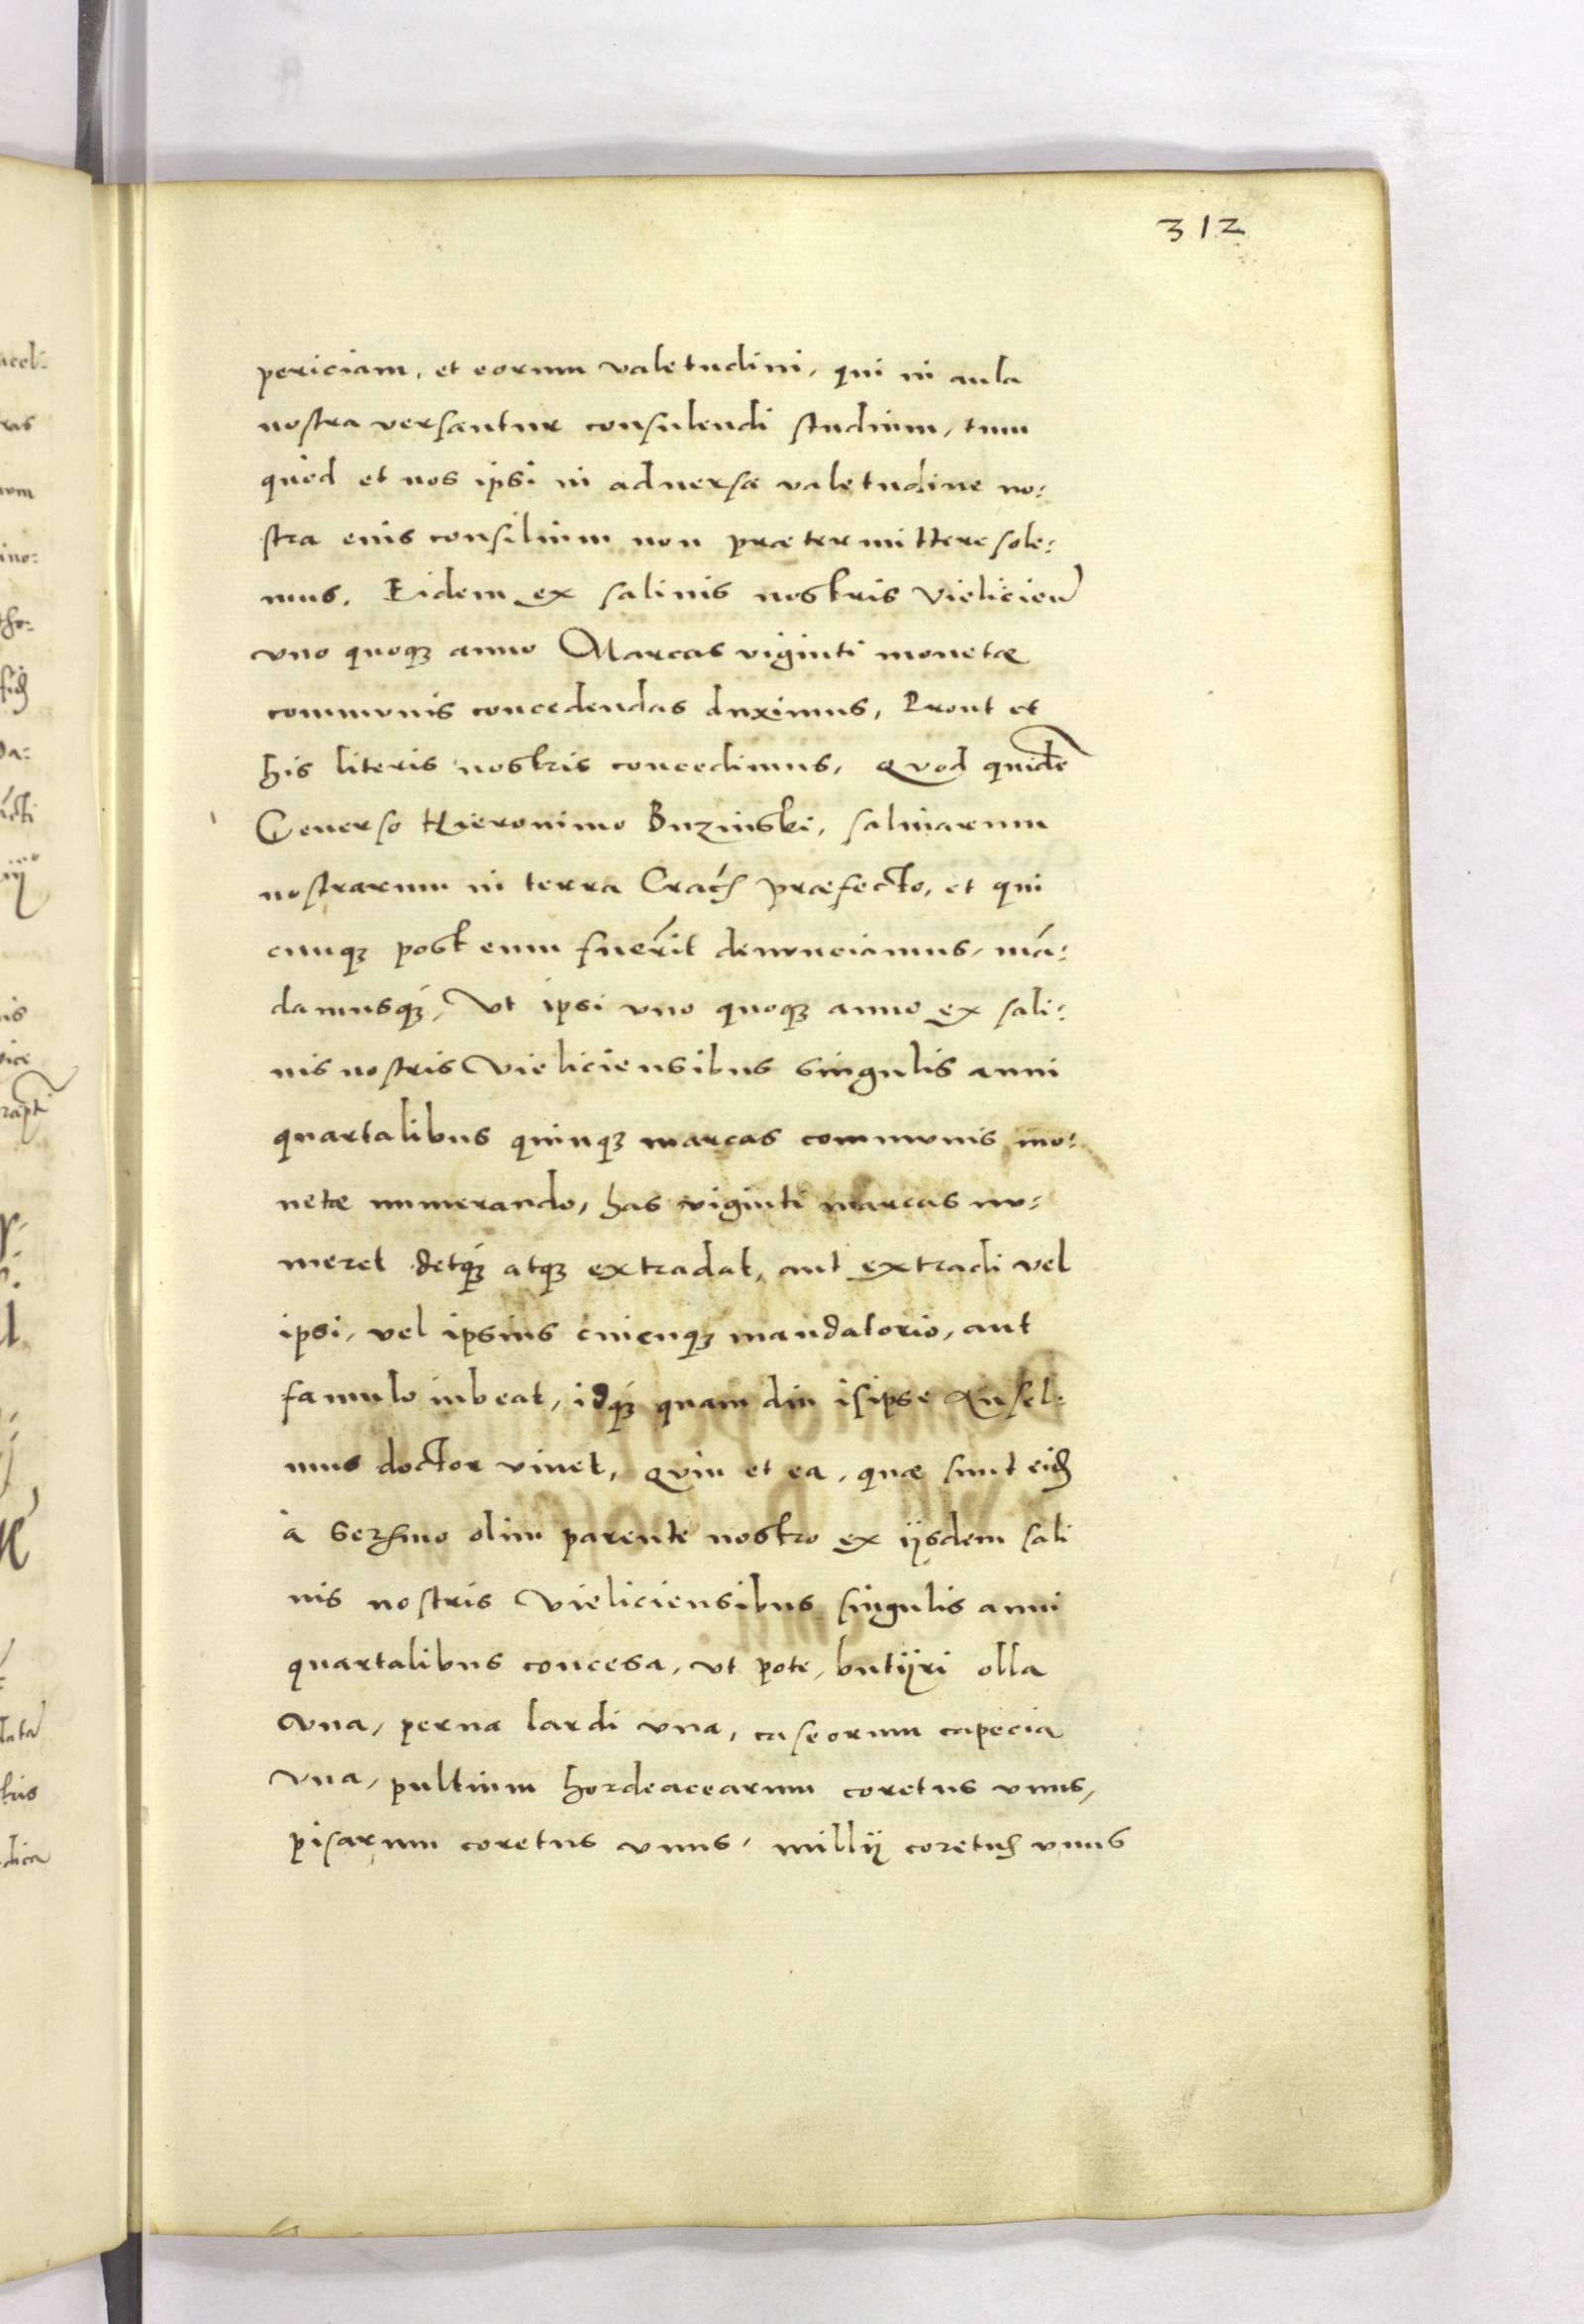 312
periciam, et eorum valetudini, qui in aula
nostra versantur consulendi studium, tum
quod et nos ipsi in aduersa valetudine no:
stra eius consilium non prætermittere sole:
mus. Eidem ex salinis nostris Vieliciensi
vno quoqꝫ anno Marcas viginti monetæ
communis concedendas duximus, Prout et
his literis nostris concedimus, Quod quidē
Generso Hieronimo Buzinski, salinarum
nostrarum in terra Cracń præfecto, et qui
cunqꝫ post eum fuerit denunciamus, mā:
damusqꝫ, Vt ipsi vno quoqꝫ anno ex sali:
nis nostris Vieliciensibus singulis anni
quartalibus quinqꝫ marcas communis mo:
netæ numerando, has viginti marcas nu:
meret detqꝫ atqꝫ extradat, aut extradi vel
ipsi, vel ipsius cuicunqꝫ mandatorio, aut
famulo iubeat, idqꝫ quam diu is ipse Ansel:
mus doctor viuet, Quin et ea, quæ sunt eidē
à Serēmo olim parente nostro ex ijsdem sali
nis nostris Vieliciensibus singulis anni
quartalibus concesa, vt pote, butijri olla
vna, perna lardi vna, caseorum capecia
vna, pultium hordeacearum coretus vnus,
pisarum coretus vnus, millij coretus vnus